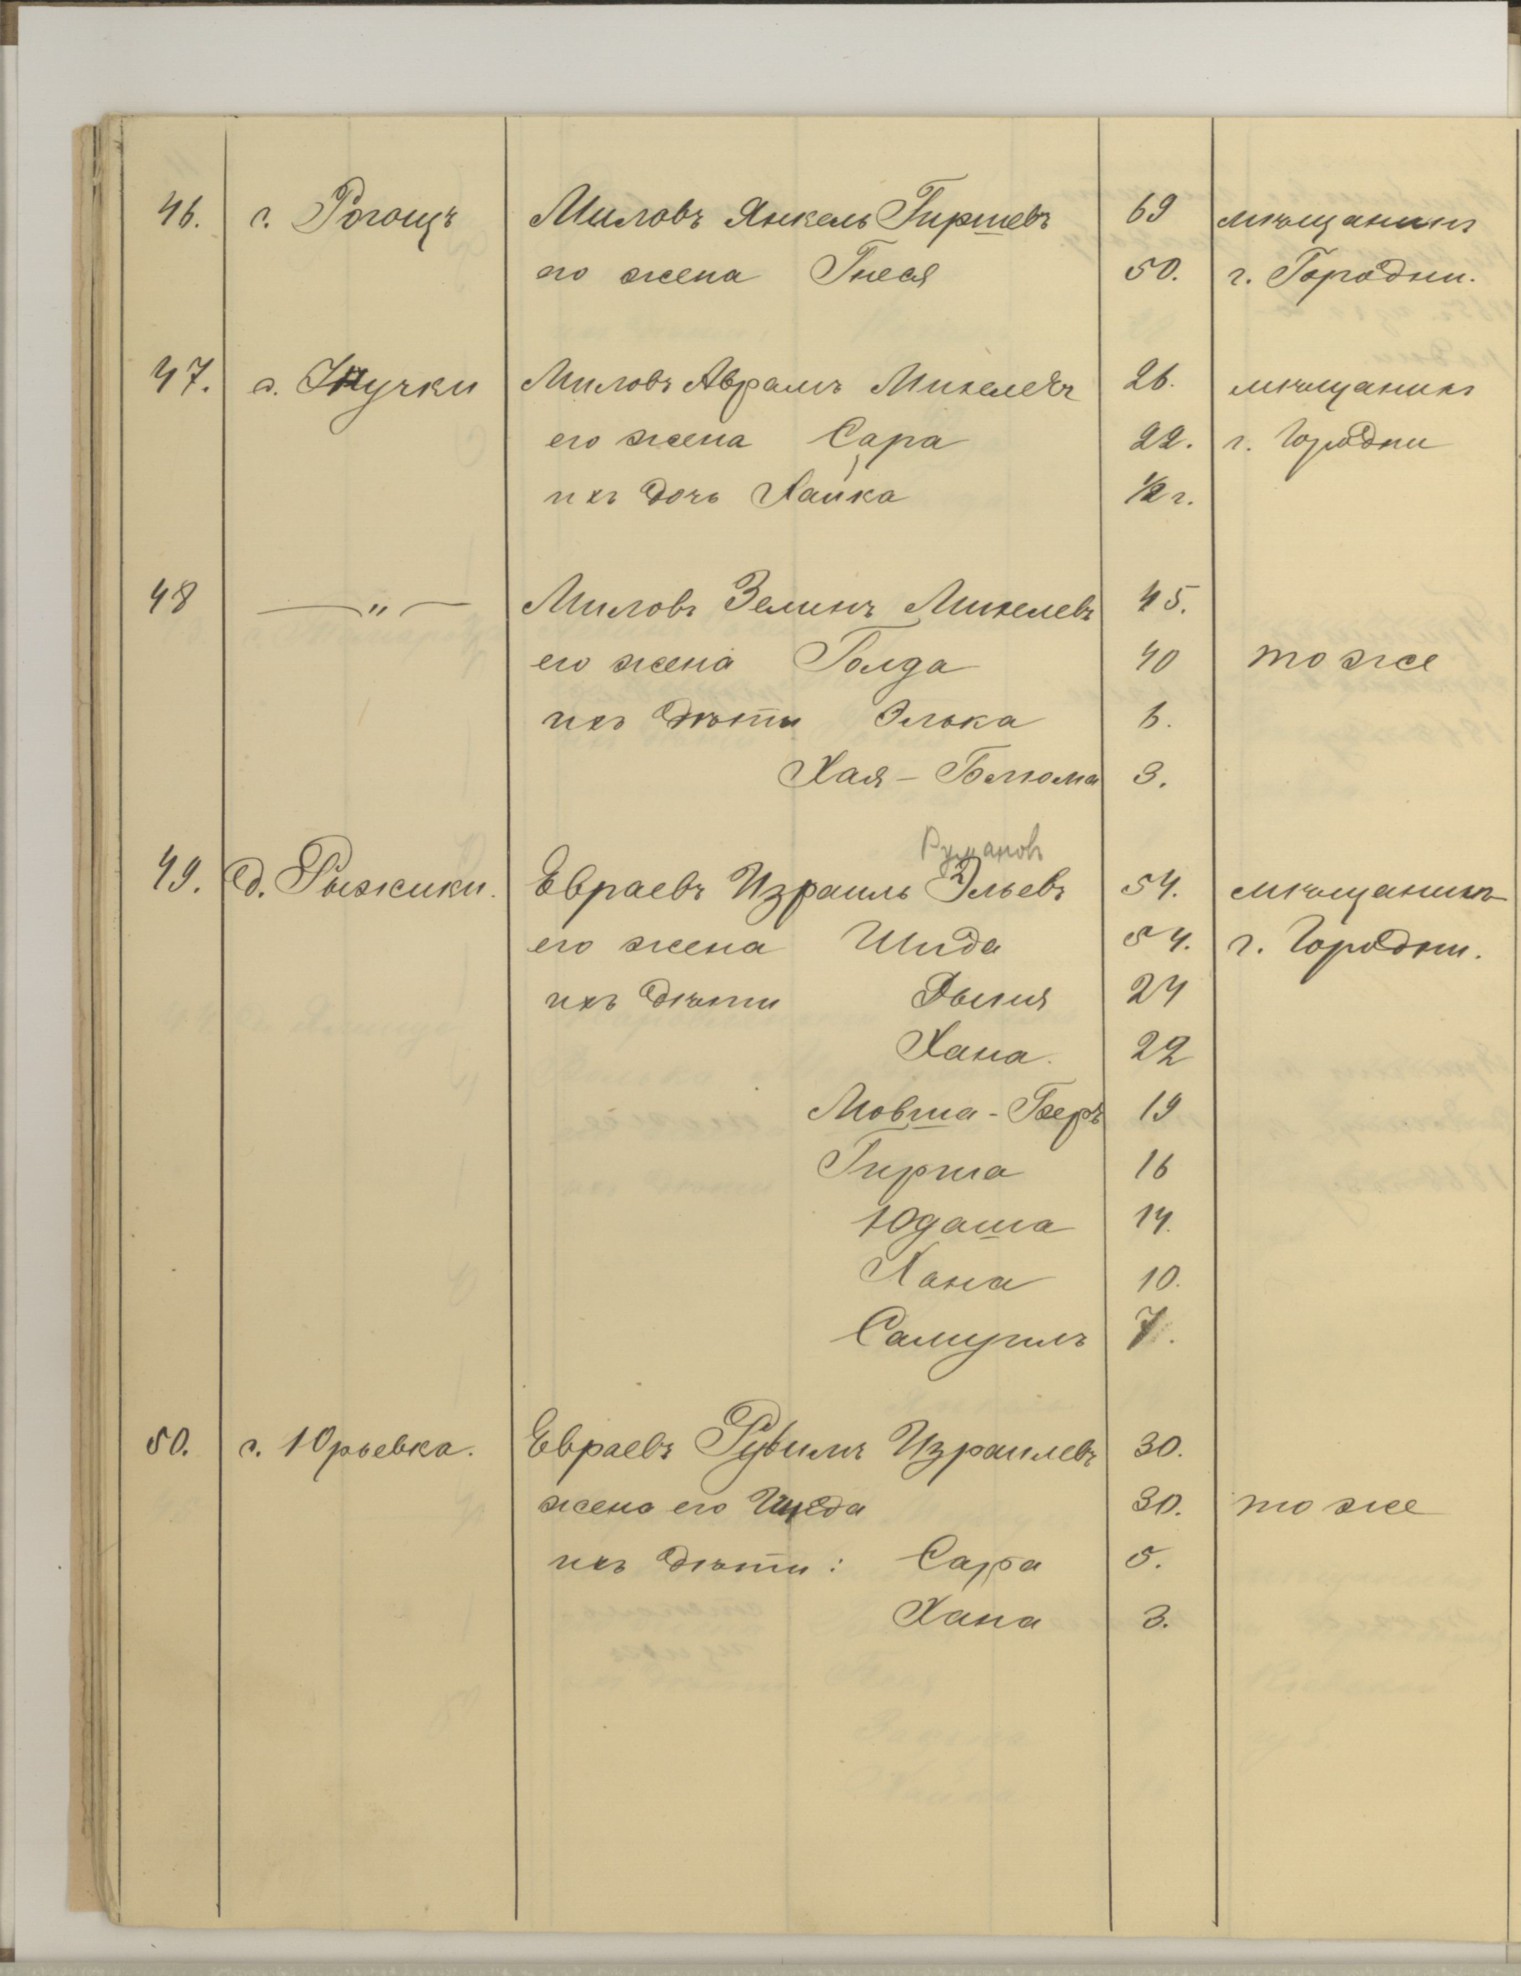 46. с. Рогощъ Миловъ Янкель Гиршевъ 69 мѣщанинъ
его жена Гнеся 50. г. Городни.
47. с. Жучки Миловъ Абрамъ Михелевъ 26. мѣщанинъ
его жена Сара 22. г. Городни
ихъ дочь Хайка 1/2 г.
48 — " — Миловъ Зелинъ Михелевъ 45.
его жена Голда 40 тоже
ихъ дѣти Элька 6.
Хая - Блюма 3.
Румановъ
49. д. Рыжики. Евраевъ Израиль Эльевъ 54. мѣщанинъ
его жена Шида 54. г. Городни.
ихъ дѣти 24
Хана. 22
Мовша - Беръ 19
Гирша 16
Юдаша 14.
Хана 10.
Самуилъ 7.
50. с. Юрьевка. Евраевъ Рувимъ Израилевъ 30.
жена его 30. тоже
ихъ дѣти: Сара 5.
Хана 3.